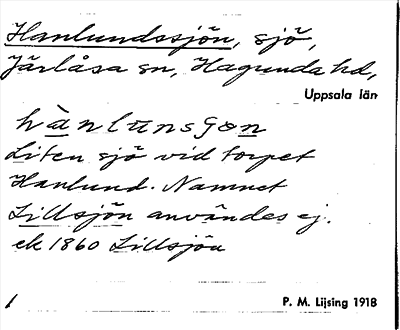 Hanlundssjön, sjö,
Järlåsa sn, Hagunda hd,
Uppsala län
hànlunsjön
Liten sjö vid torpet
Hanlund. Namnet
Lillsjön användes ej.
ek 1860 Lillsjön
1
P. M. Lijsing 1918